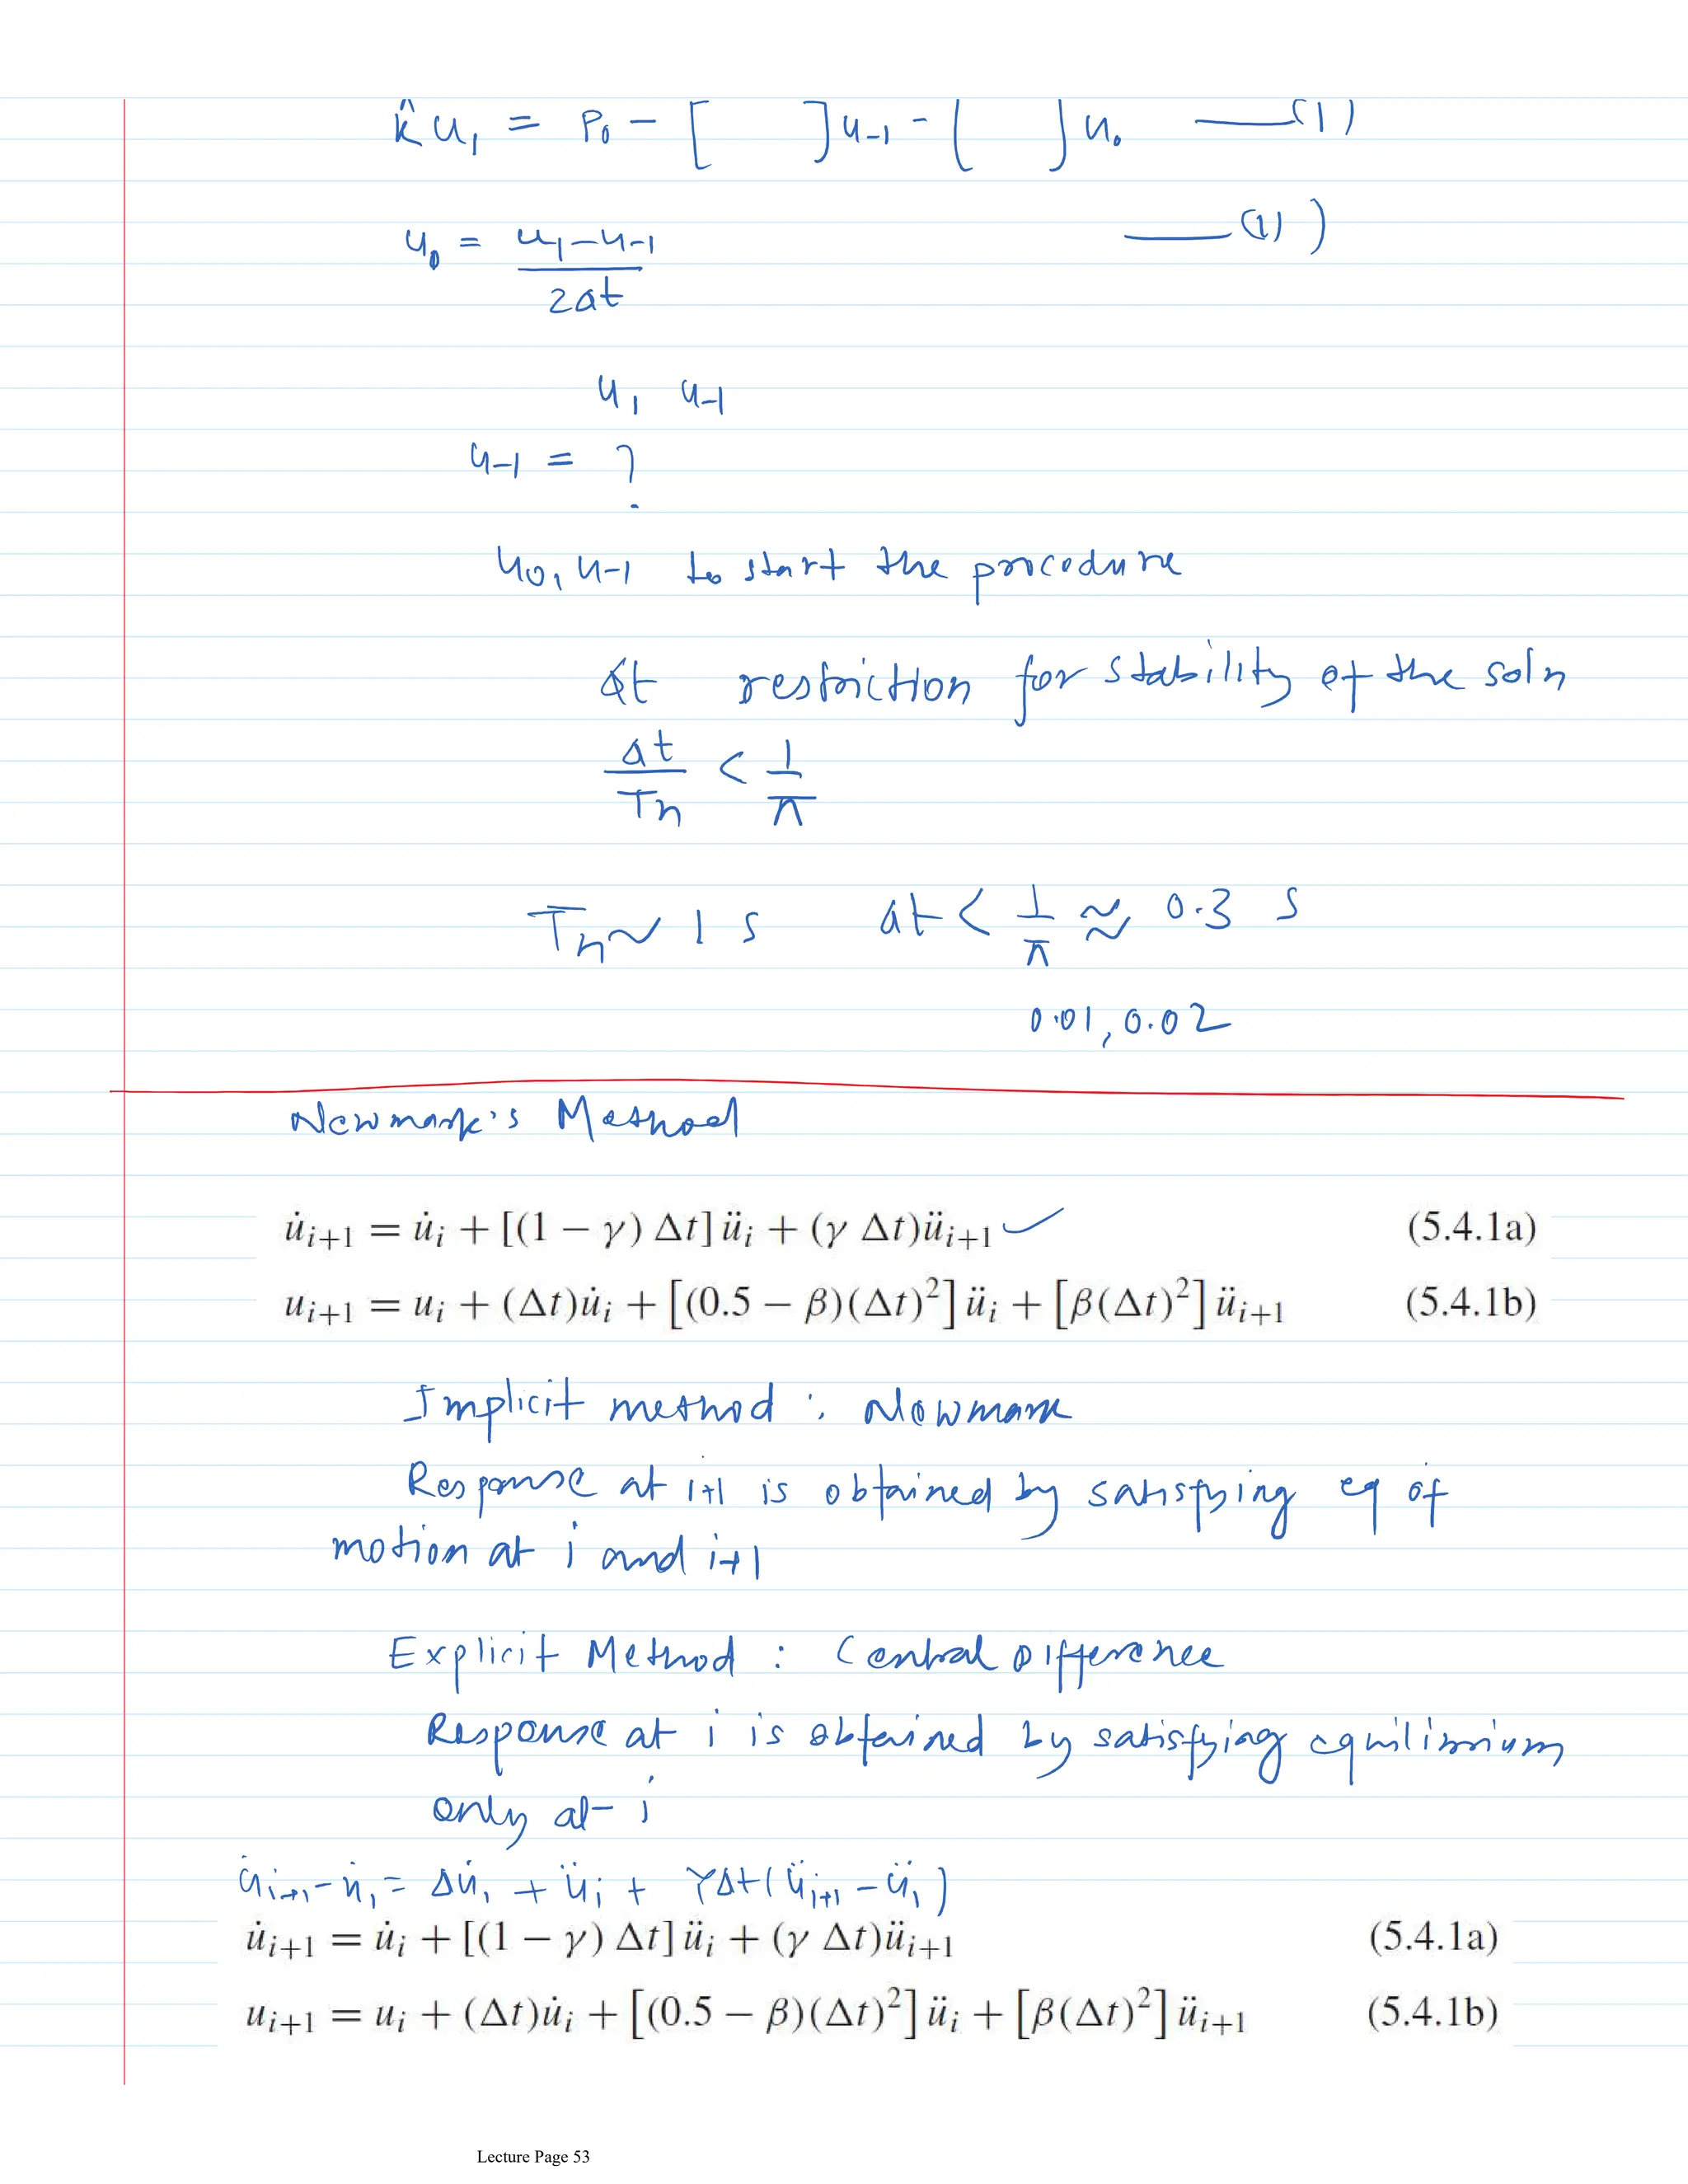 k̂ u₁ = P₀ − [ ] u₋₁ − [ ] u₀ —(1)
u₀ = (u₁ − u₋₁) / 2Δt —(1) )
u₁ u₋₁
u₋₁ = ?
u₀, u₋₁ to start the procedure
Δt restriction for stability of the soln
Δt/Tn < 1/π
Tn ~ 1 s Δt < 1/π ≈ 0.3 s
0.01, 0.02
Newmark's Method
u̇ᵢ₊₁ = u̇ᵢ + [(1 − γ) Δt] üᵢ + (γ Δt)üᵢ₊₁ ✓ (5.4.1a)
uᵢ₊₁ = uᵢ + (Δt)u̇ᵢ + [(0.5 − β)(Δt)²] üᵢ + [β(Δt)²] üᵢ₊₁ (5.4.1b)
Implicit method : Newmark
Response at i+1 is obtained by satisfying eq of
motion at i and i+1
Explicit Method : Central Difference
Response at i is obtained by satisfying equilibrium
only at i
u̇ᵢ₊₁ − u̇ᵢ = Δu̇ᵢ + üᵢ + γΔt(üᵢ₊₁ − üᵢ)
u̇ᵢ₊₁ = u̇ᵢ + [(1 − γ) Δt] üᵢ + (γ Δt)üᵢ₊₁ (5.4.1a)
uᵢ₊₁ = uᵢ + (Δt)u̇ᵢ + [(0.5 − β)(Δt)²] üᵢ + [β(Δt)²] üᵢ₊₁ (5.4.1b)
Lecture Page 53